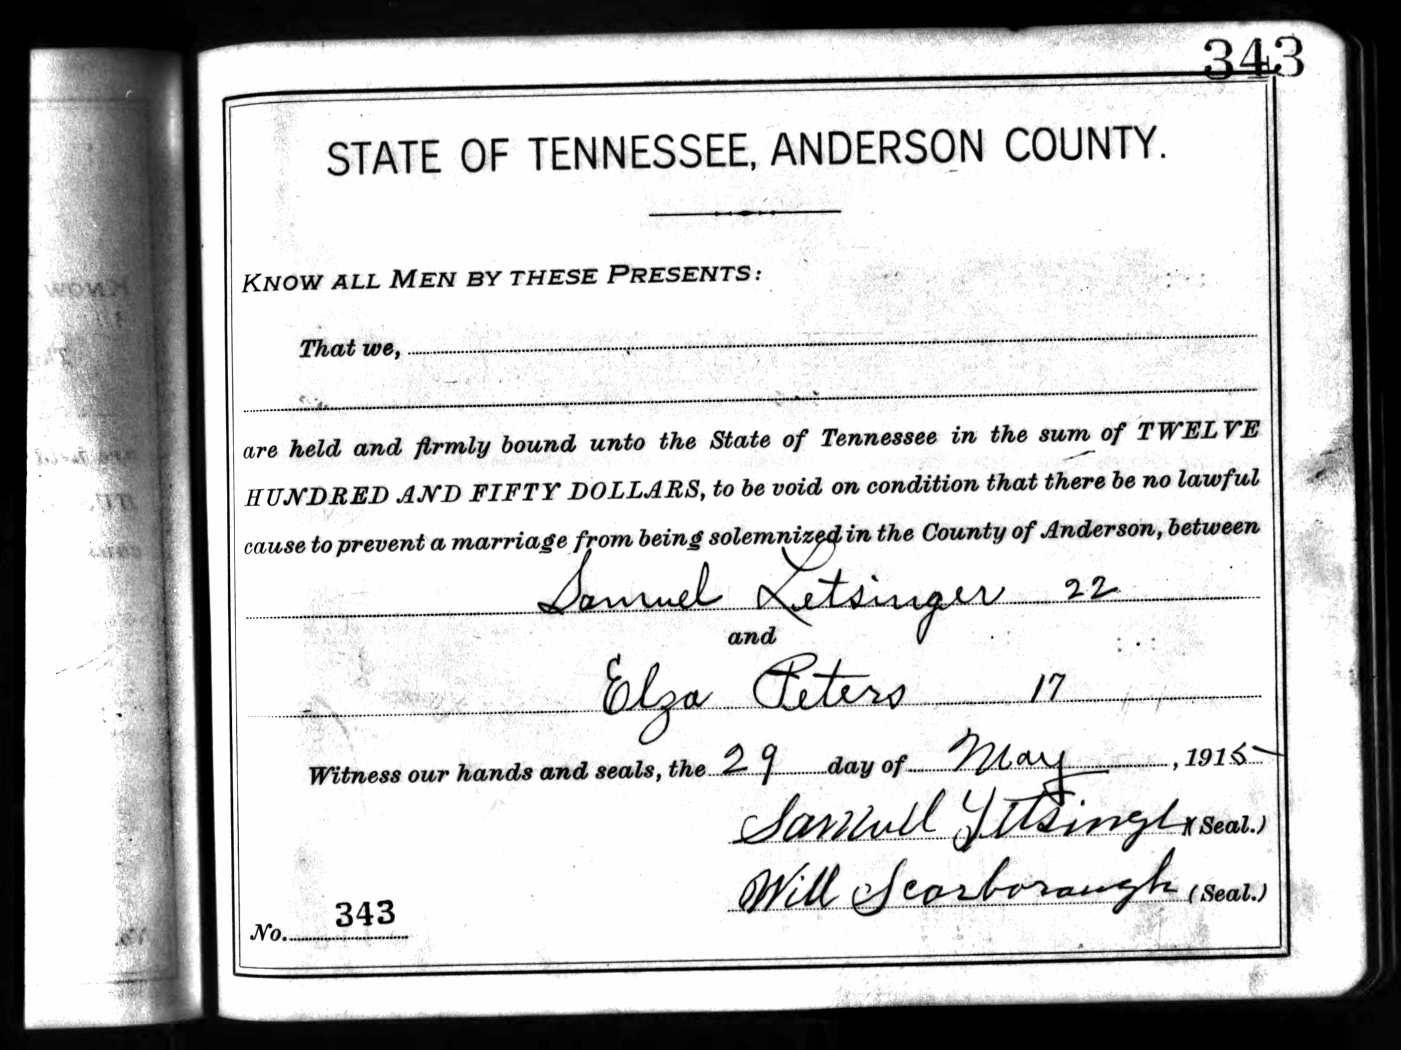 343
STATE OF TENNESSEE, ANDERSON COUNTY.
KNOW ALL MEN BY THESE PRESENTS:
That we,
are held and firmly bound unto the State of Tennessee in the sum of TWELVE
HUNDRED AND FIFTY DOLLARS, to be void on condition that there be no lawful
cause to prevent a marriage from being solemnized in the County of Anderson, between
Samuel Letsinger 22
and
Elza Peters 17
Witness our hands and seals, the 29 day of May, 1915
Samuel (Seal.)
Will Scarborough (Seal.)
No. 343